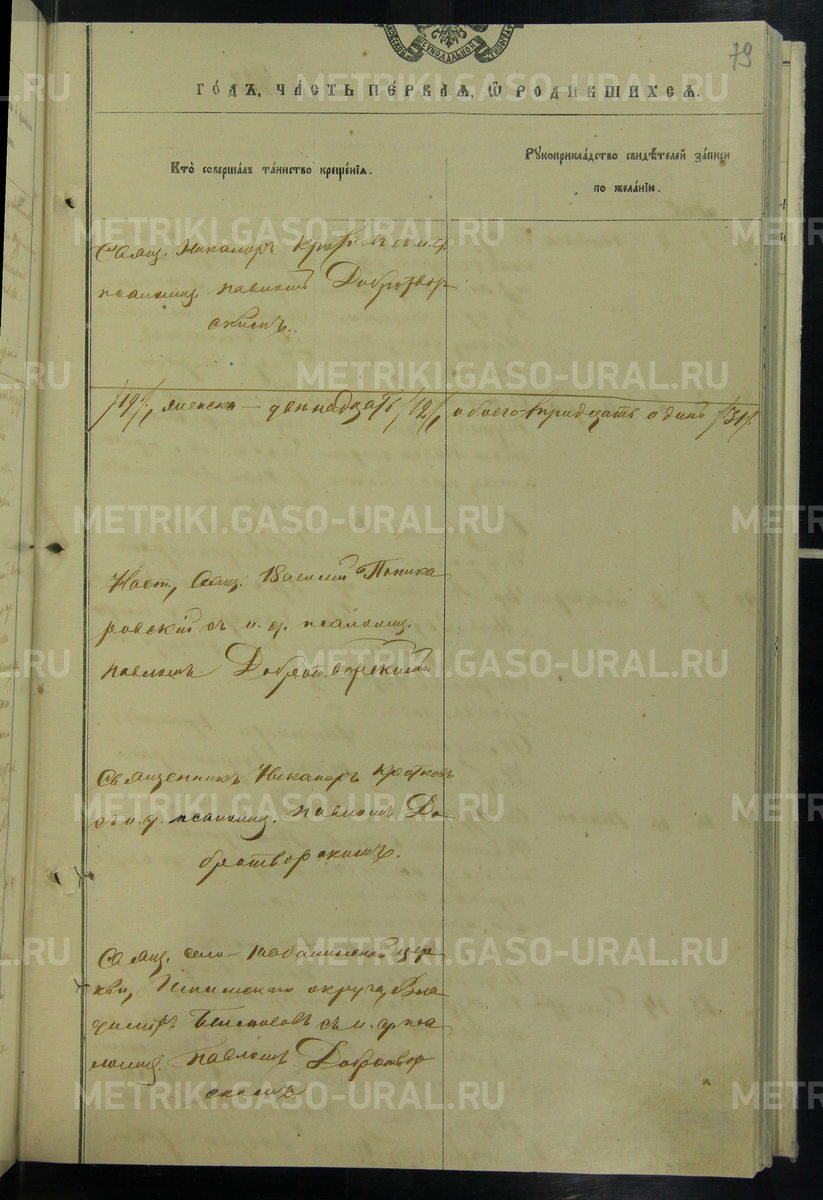 79
ГОДЪ, ЧАСТЬ ПЕРВАЯ, Ѡ РОДИВШИХСЯ.
Кто совершалъ таинство крещенія.
Рукоприкладство свидѣтелей записи
по желанію.
Свящ. Никаноръ Кротковъ съ и. д.
псаломщ. Павломъ Добротвор
скимъ.
/19/, женска – двенадцать /12/, обоего – тридцать одинъ /31/.
Наст., Свящ. Василій Поника
ровскій съ и. д. псаломщ.
Павломъ Добротворскимъ.
Священникъ Никаноръ Кротковъ
съ и. д. псаломщ. Павломъ До
бротворскимъ.
Свящ. села цер
кви, Ишимскаго округа, Вла
димиръ съ и. д. пса
ломщ. Павломъ Добротвор
скимъ
METRIKI.GASO-URAL.RU